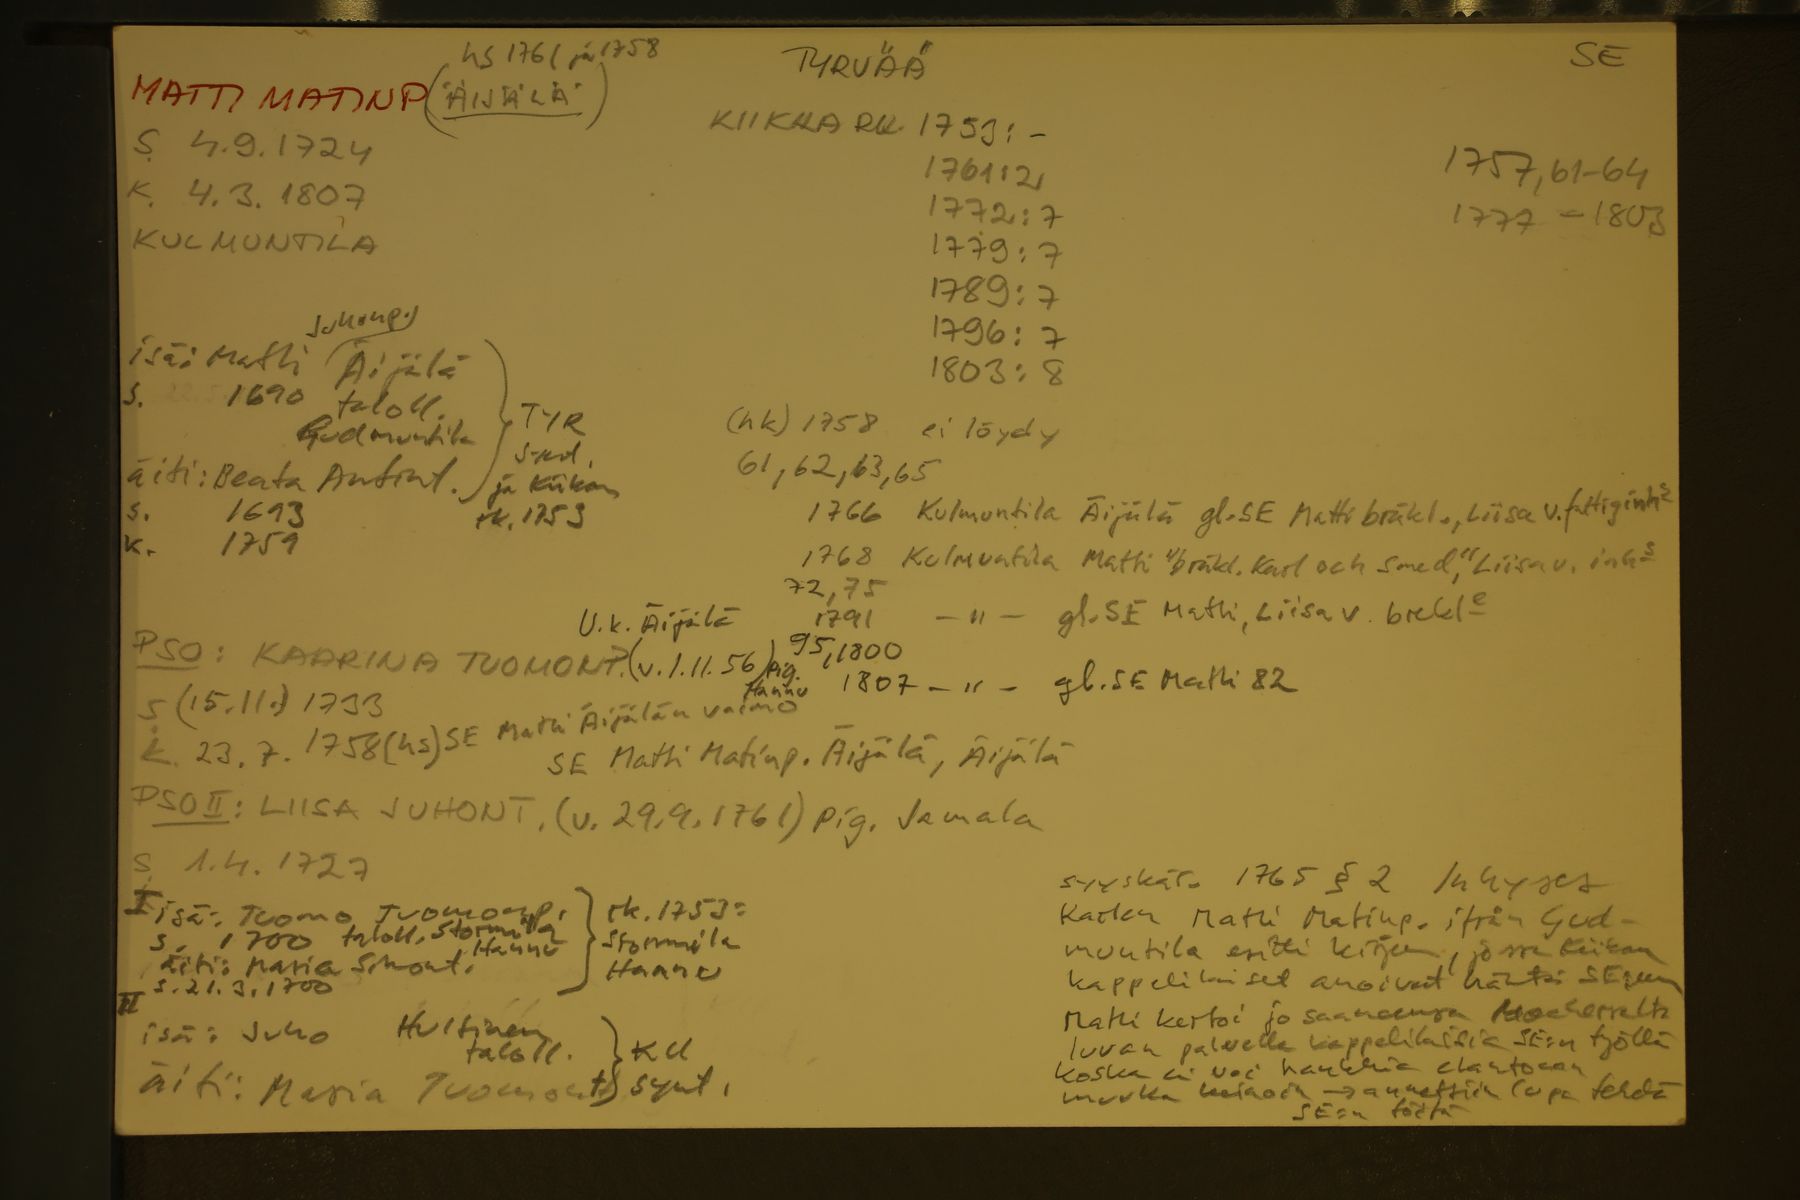 hs 1761 ja 1758
MATTI MATINP (ÄIJÄLÄ)
TYRVÄÄ
SE
S. 4.9.1724
K. 4.3.1807
KULMUNTILA
KIIKKA RK. 1753: -
1761:2
1772:7
1779:7
1789:7
1796:7
1803:8
1757,61-64
1777 - 1803
Juhonp.
isä: Matti Äijälä
s. 1690 taloll.
Gudmuntila
äiti: Beata Antint.
s. 1693
k. 1759
TYR
synt.
ja Kiikan
rk. 1753
(hk) 1758 ei löydy
61,62,63,65
1766 Kulmuntila Äijälä gl.SE Matti bräkl., Liisa v. fattiginhs
1768 Kulmuntila Matti "bräkl. Karl och Smed," Liisa v. inhs
72,75
1791 - " - gl.SE Matti, Liisa v. brekle
95,1800
1807 - " - gl.SE Matti 82
U.k. Äijälä
PSO: KAARINA TUOMONT. (v. 1.11.56) pig.
Hannu
S (15.11.) 1733
k. 23.7.1758 (hs) SE Matti Äijälän vaimo
SE Matti Matinp. Äijälä, Äijälä
PSO II: LIISA JUHONT. (v. 29.9.1761) pig. Jamala
S 1.4.1727
I isä: Tuomo Tuomonp.
s. 1700 taloll. Stormila
Hannu
äiti: Maria Simont.
s. 21.3.1700
rk. 1753:
Stormila
Hannu
II
isä: Juho
taloll.
äiti: Maria Tuomont.
KU
synt.
syyskär. 1765 § 2 Inhyses
Karlen Matti Matinp. ifrån Gud-
muntila esitti kirjeen, jossa Kiikan
kappelilaiset anoivat häntä SE:ksi
Matti kertoi jo saaneensa
luvan palvella kappelilaisia SE:n työllä
koska ei voi hankkia elantoaan
muulla keinoin -> annettiin lupa tehdä
SE:n töitä